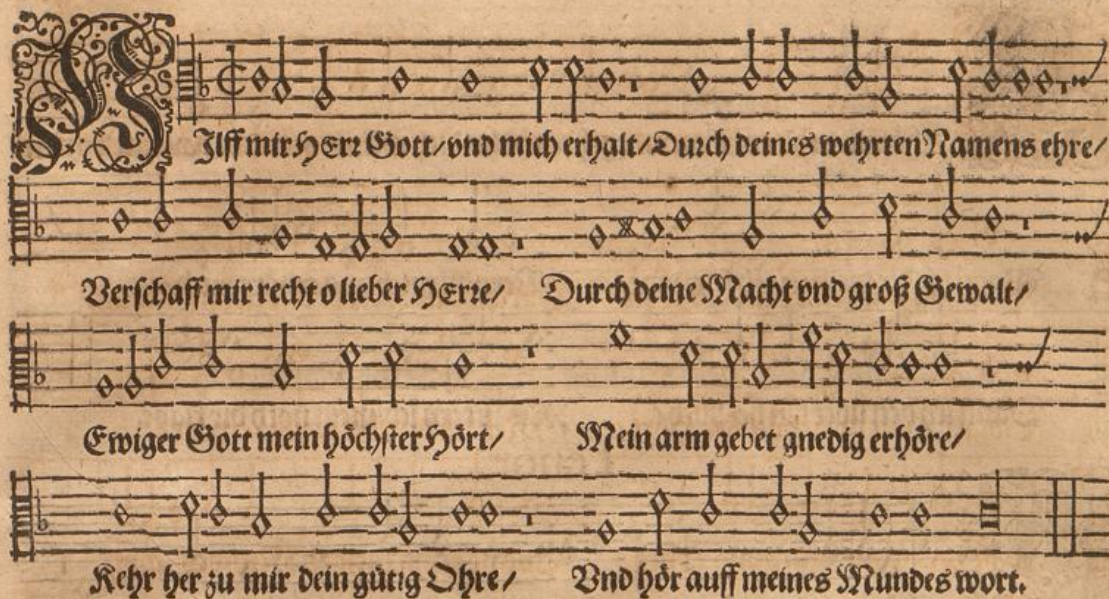 HIlff mir HErr Gott/ vnd mich erhalt/ Durch deines wehrten Namens ehre/
Verschaff mir recht o lieber HErre/ Durch deine Macht vnd groß Gewalt/
Ewiger Gott mein höchster Hört/ Mein arm gebet gnedig erhöre/
Kehr her zu mir dein gütig Ohre/ Vnd hör auff meines Mundes wort.